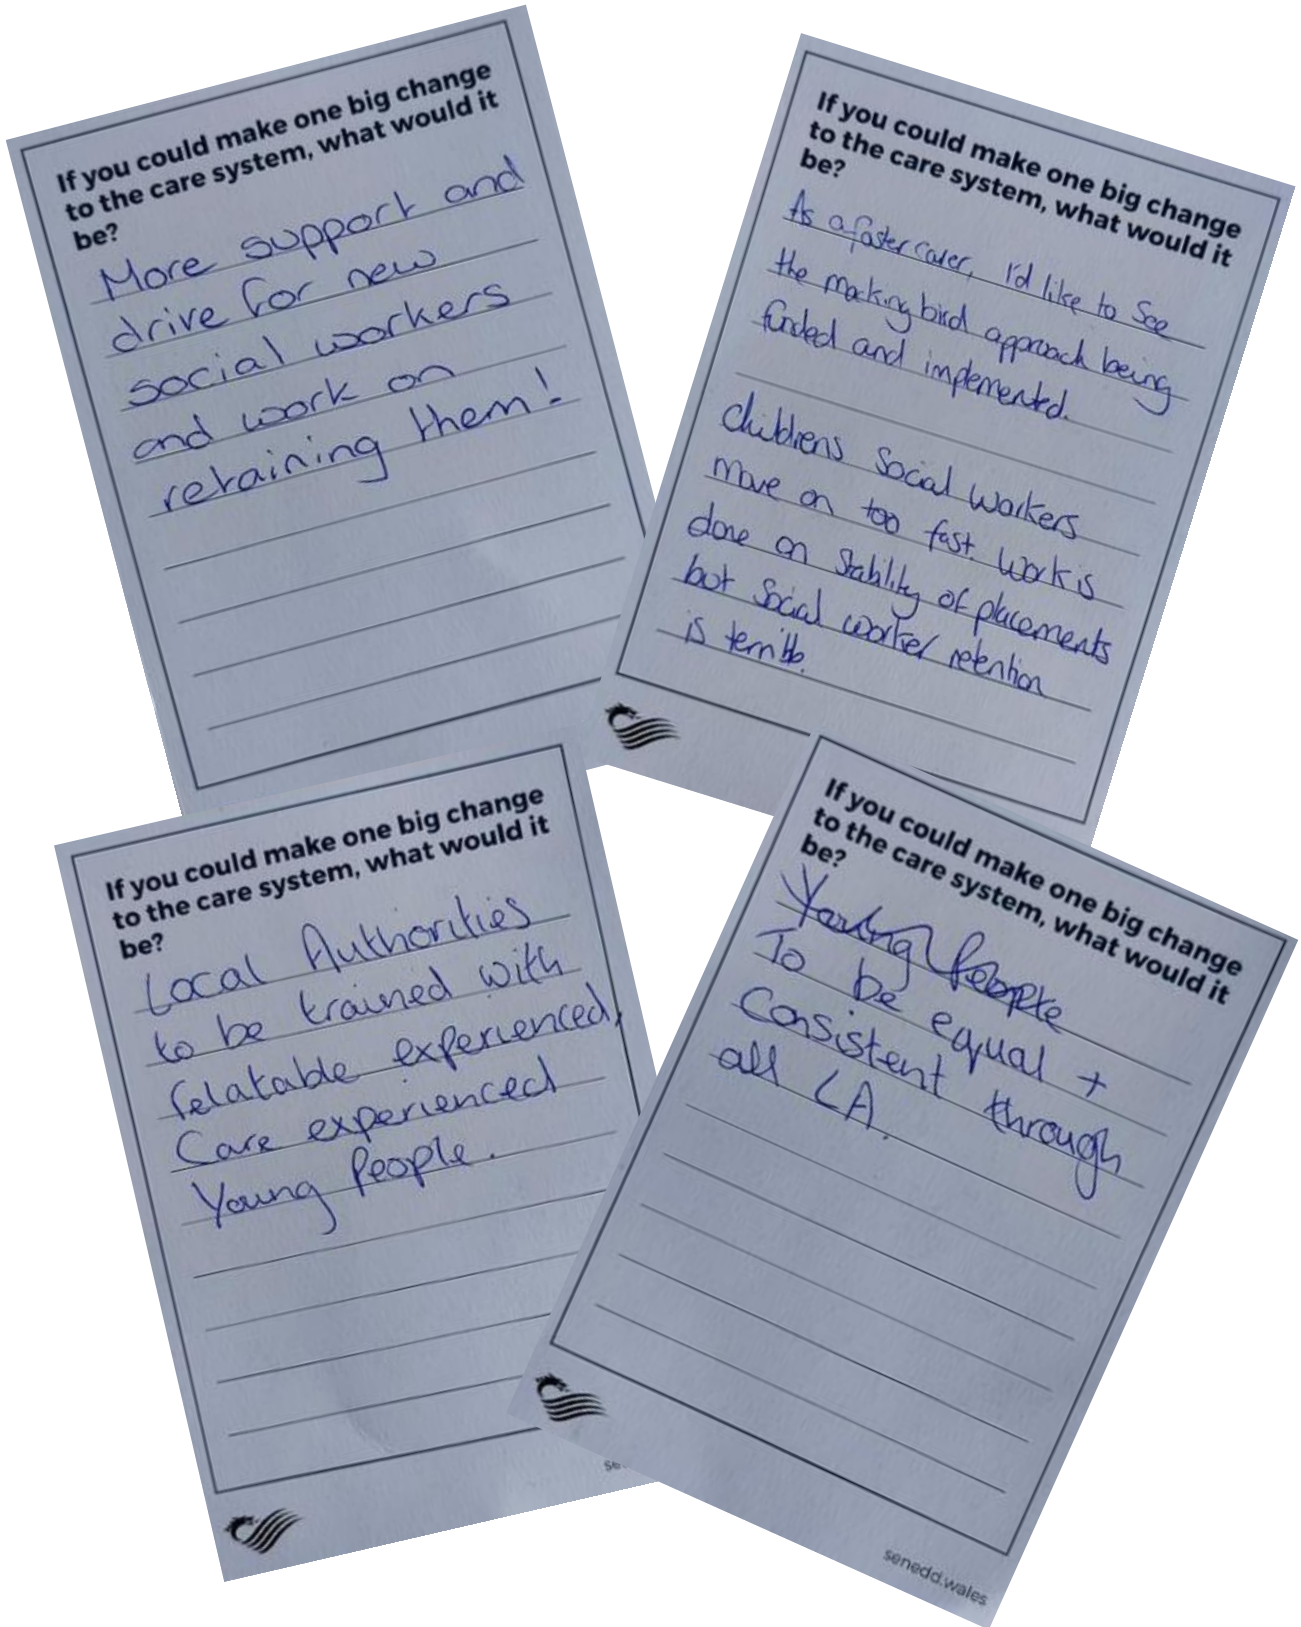 If you could make one big change
to the care system, what would it
be?
More support and
drive for new
social workers
and work on
retaining them!
If you could make one big change
to the care system, what would it
be?
As a foster carer, I'd like to see
the mocking bird approach being
funded and implemented.
childrens Social Workers
move on too fast. Work is
done on stability of placements
but Social worker retention
is terrible.
If you could make one big change
to the care system, what would it
be?
Local Authorities
to be trained with
relatable experienced,
Care experienced
Young People.
If you could make one big change
to the care system, what would it
be?
Young People
To be equal +
Consistent through
all LA.
senedd.wales